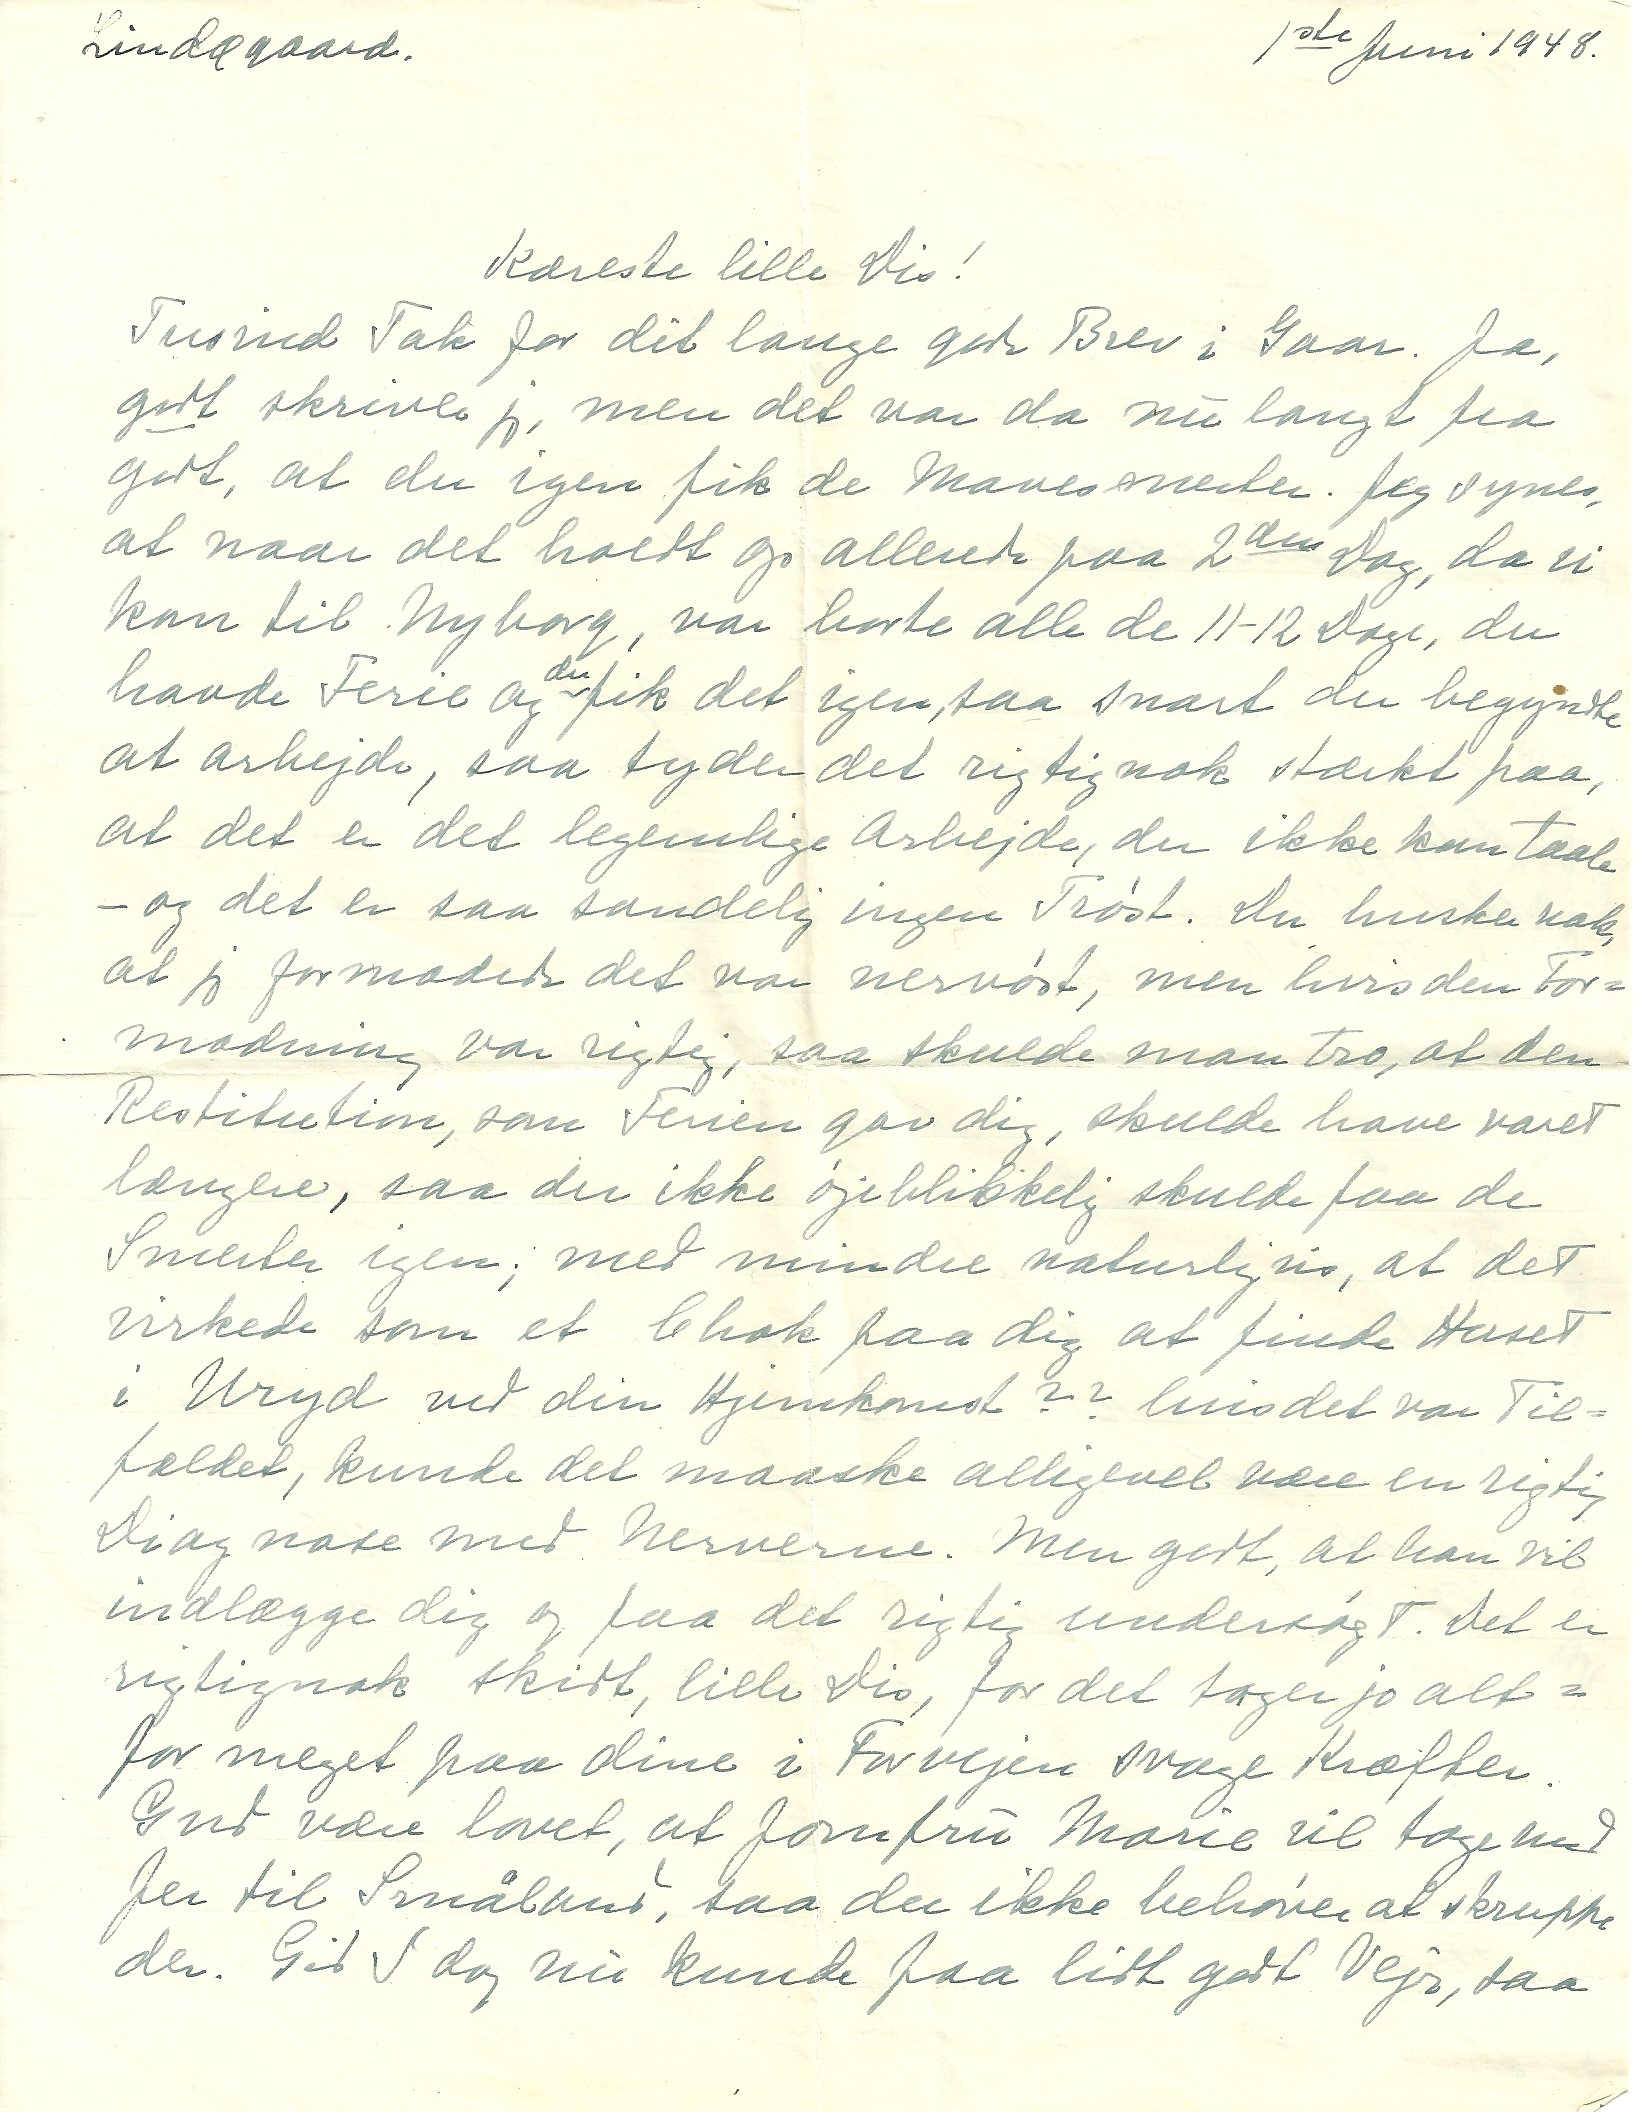 Lindøgaard. 1ste Juni 1948.
Kæreste lille Dis!
Tusind Tak for dit lange gode Brev i Gaar. Ja,
godt skriver jg, men det var da nu langt fra
godt, at du igen fik de Mavesmerter. Jeg synes,
at naar det holdt op allerede paa 2den Dag, da vi
kom til Nyborg, var borte alle de 11-12 Dage, du
havde Ferie og du fik det igen, saa snart du begyndte
at arbejde, saa tyder det rigtignok stærkt paa,
at det er det legemlige Arbejde, du ikke kan taale
– og det er saa sandelig ingen Trøst. Du husker nok,
at jg formodede det var nervøst, men hvis den For=
modning var rigtig, saa skulde man tro, at den
Restitution, som Ferien gav dig, skulde have varet
længere, saa du ikke øjeblikkelig skulde faa de
Smerter igen; med mindre naturligvis, at det
virkede som et Chok paa dig at finde Huset
i Uryd ved din Hjemkomst?? hvis det var Til=
fældet, kunde det maaske alligevel være en rigtig
Diagnose med Nerverne. Men godt, at han vil
indlægge dig og faa det rigtig undersøgt. Det er
rigtignok skidt, lille Dis, for det tager jo alt=
for meget paa dine i Forvejen svage Kræfter.
Gud være lovet, at Jomfru Marie vil tage med
Jer til Småland, saa du ikke behøver at skruppe
der. Gid I dog nu kunde faa lidt godt Vejr, saa